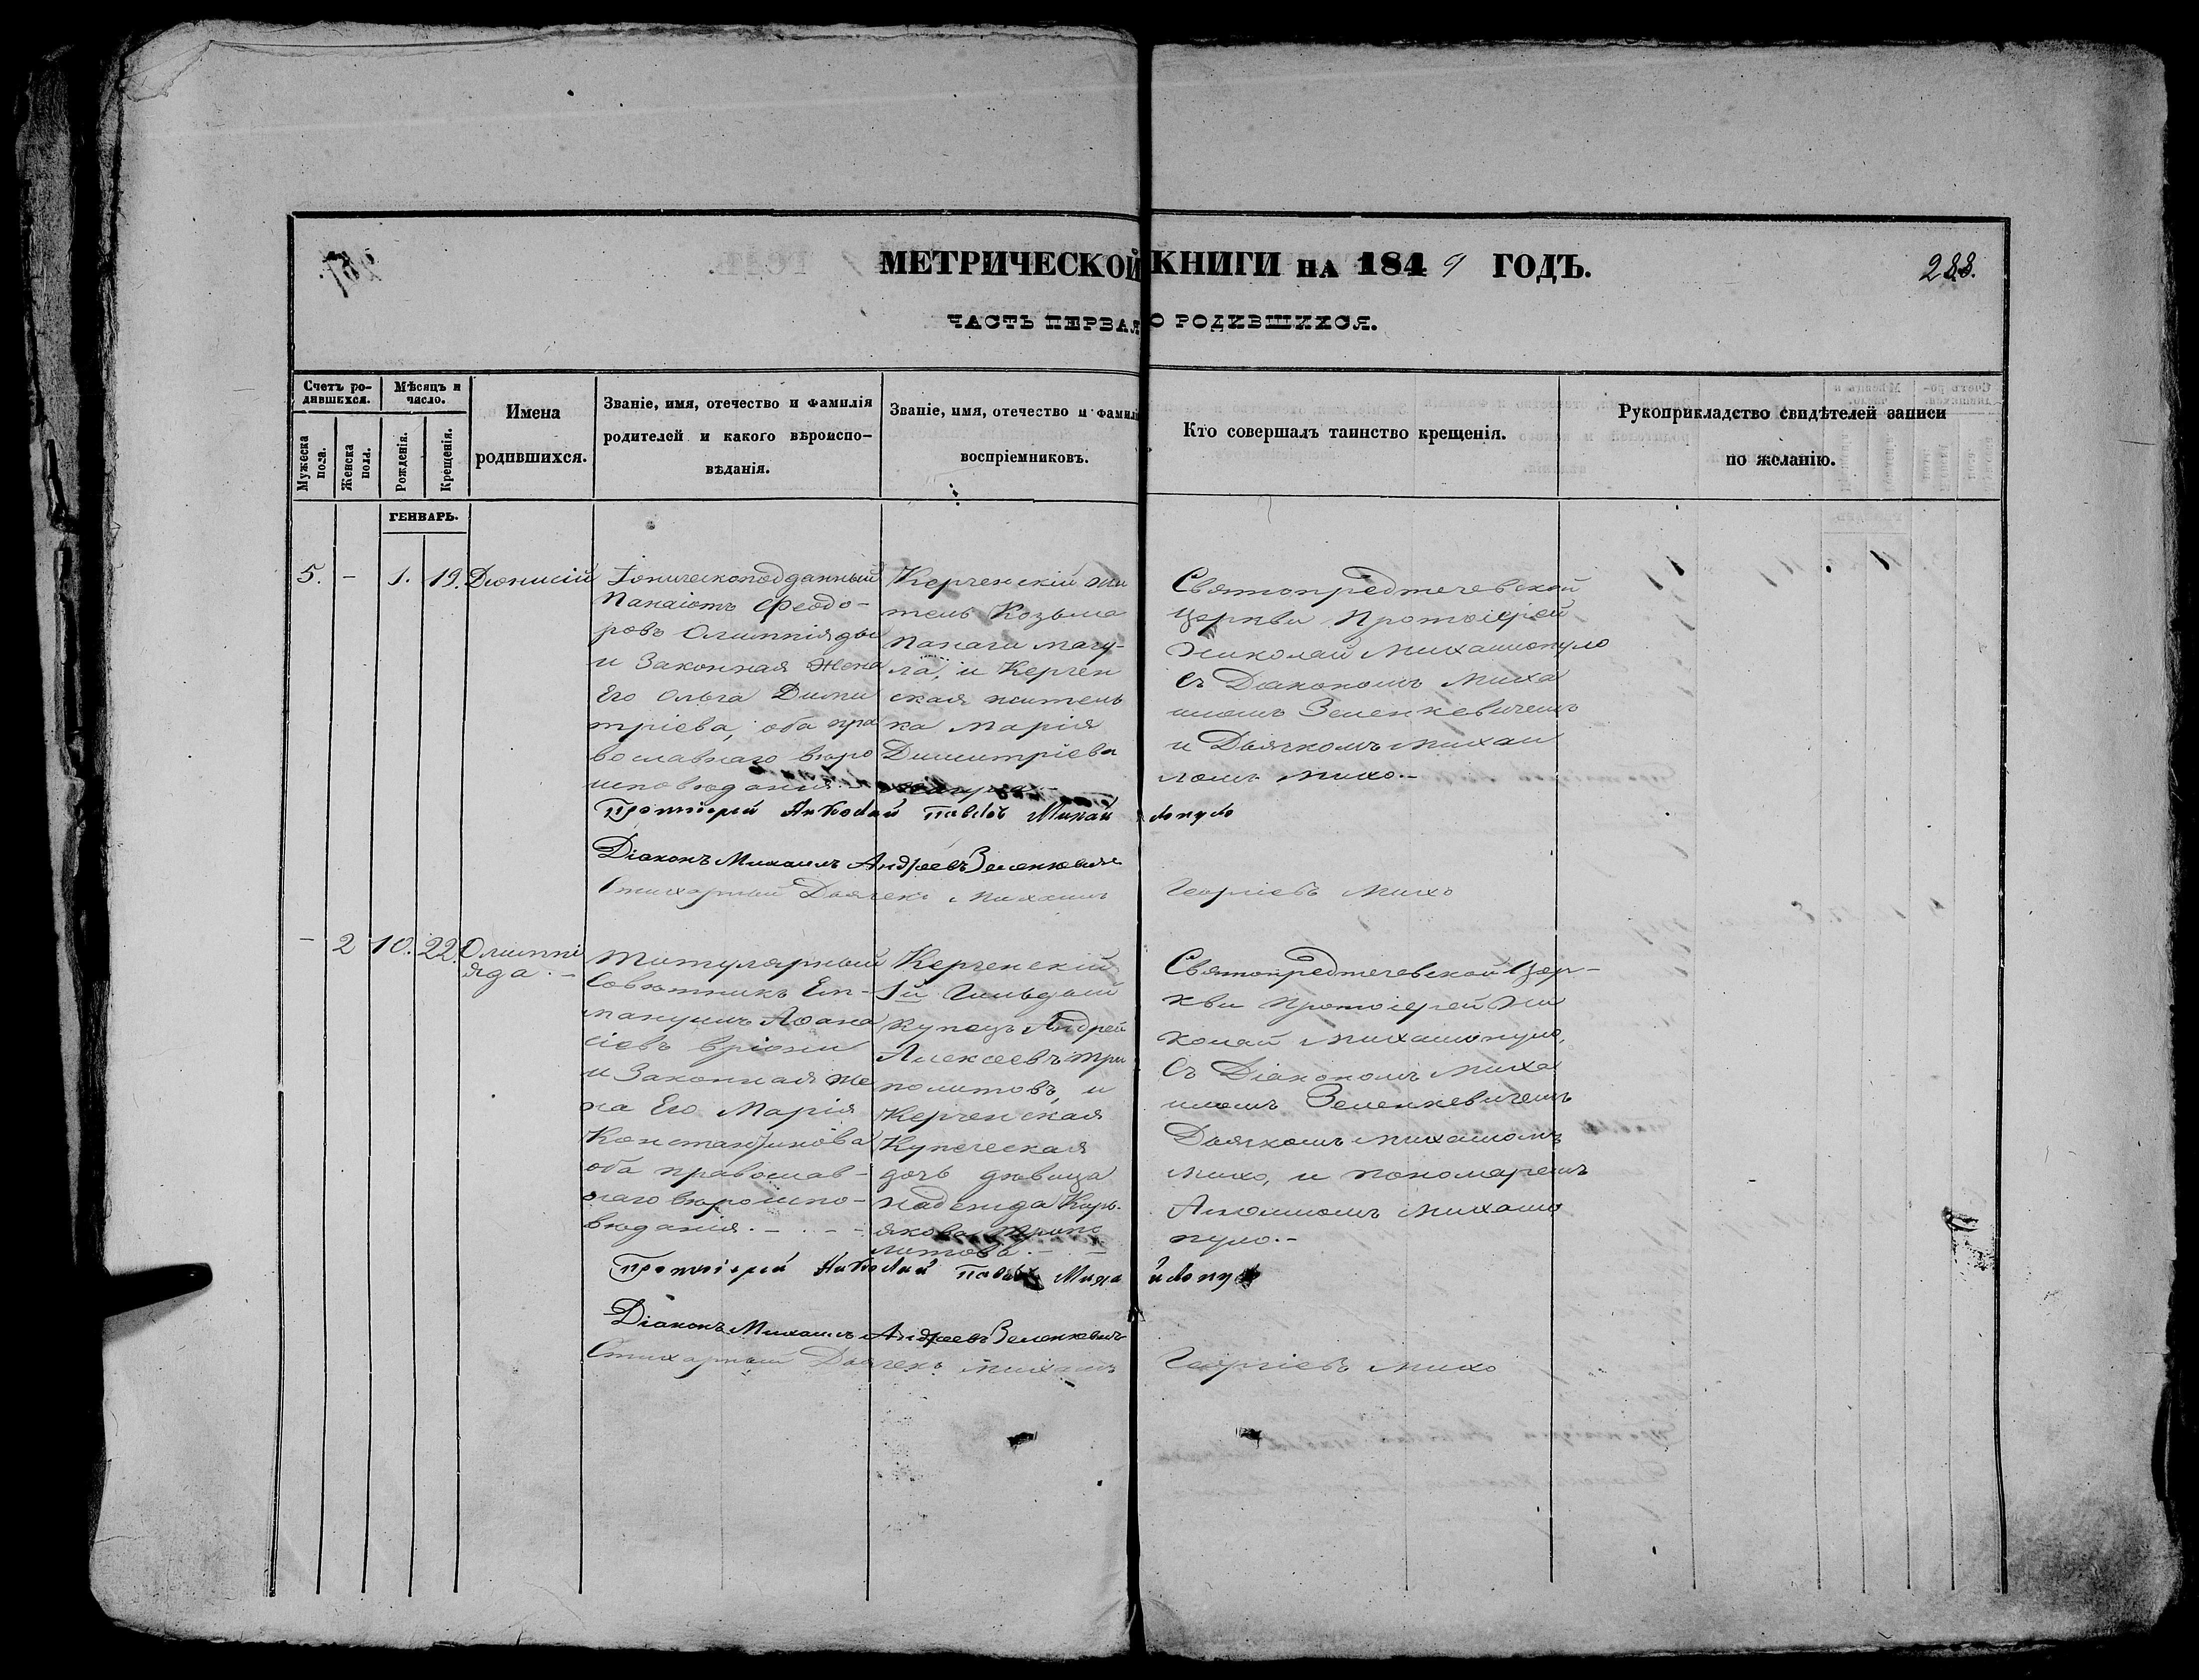 МЕТРИЧЕСКОЙ КНИГИ НА 1849 ГОДЪ.
288.
ЧАСТЬ ПЕРВАЯ О РОДИВШИХСЯ.
Счетъ ро-
дившихся.
Мужеска пола.
Женска пола.
Мѣсяцъ и
число.
Рожденія.
Крещенія.
Имена
родившихся.
Званіе, имя, отечество и фамилія
родителей и какого вѣроиспо-
вѣданія.
Званіе, имя, отечество и фамилі
воспріемниковъ.
Кто совершалъ таинство крещенія.
Рукоприкладство свидѣтелей записи
по желанію.
ГЕНВАРЬ.
5. - 1. 19. Діонисій
Іоническоподданный
Панаіотъ Феодо-
ровъ Олимпіяды
и Законная Жена
Его Ольга Дими
тріева, оба пра
вославнаго вѣро
исповѣданія.
Керченскій жи
тель Козьма
Панаги Магу-
ла, и Керчен
ская житель
ка Марія
Димитріева
Святопредтечевской
Церкви Протоіерей
Николай Михаилопуло
Съ Діакономъ Миха
иломъ Зеленкевичемъ
и Дьячкомъ Михаи
ломъ Михо.-
Протоіерей Николай Павловъ Михайлопуло
Діаконъ Михаилъ Андреевъ Зеленкевичъ
Стихарный Дьячекъ Михаилъ Георгіевъ Михо
- 2 10. 22. Олимпі
яда.-
Титулярный
Совѣтникъ Ем-
мануилъ Аѳана
сіевъ Вріони
и Законная же
на Его Марія
Константинова
оба православ-
наго вѣроиспо-
вѣданія.-
Керченскій
1й Гильдіи
Купецъ Андрей
Алексеевъ Три
политовъ, и
Керченская
Купеческая
дочь девица
Надежда Кирь-
якова Трипо
литова.-
Святопредтечевской Цер-
кви Протоіерей Ни
колай Михаилопуло,
Съ Діакономъ Миха
иломъ Зеленкевичемъ
Дьячкомъ Михаиломъ
Михо, и пономаремъ
Михаило
пуло.-
Протоіерей Николай Павловъ Михайлопуло
Діаконъ Михаилъ Андреевъ Зеленкевичъ
Стихарный Дьячекъ Михаилъ Георгіевъ Михо